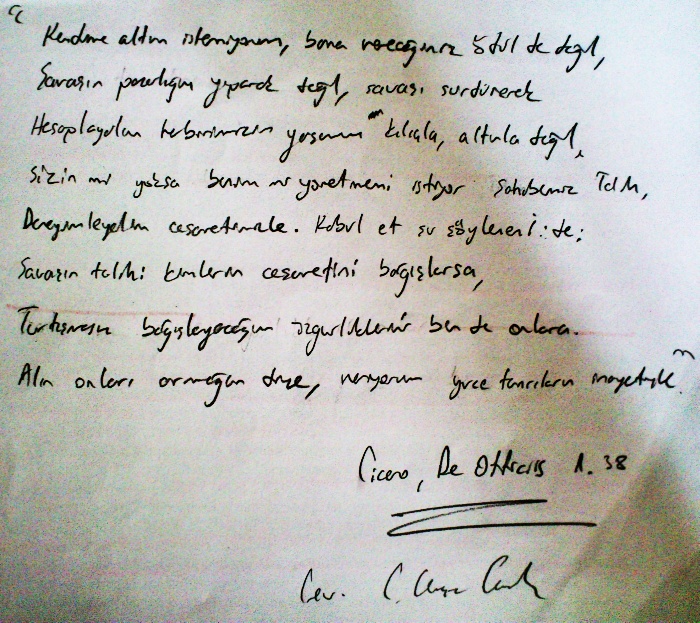 "Kendime altın istemiyorum, bana vereceğiniz ödül de değil,
Savaşın pazarlığını yaparak değil, savaşı sürdürerek
Hesaplayalım herbirimizin yaşamını kılıçla, altınla değil,
Sizin mi yoksa benim mi yönetmemi istiyor sahibemiz Talih,
Deneyimleyelim cesaretimizle. Kabul et şu söyleneni de:
Savaşın talihi kimlerin cesaretini bağışlarsa,
bağışlayacağım özgürlüklerini ben de onlara.
Alın onları armağan diye, veriyorum yüce tanrıların inayetiyle"
Cicero, De Officiis 1.38
Çev. C.